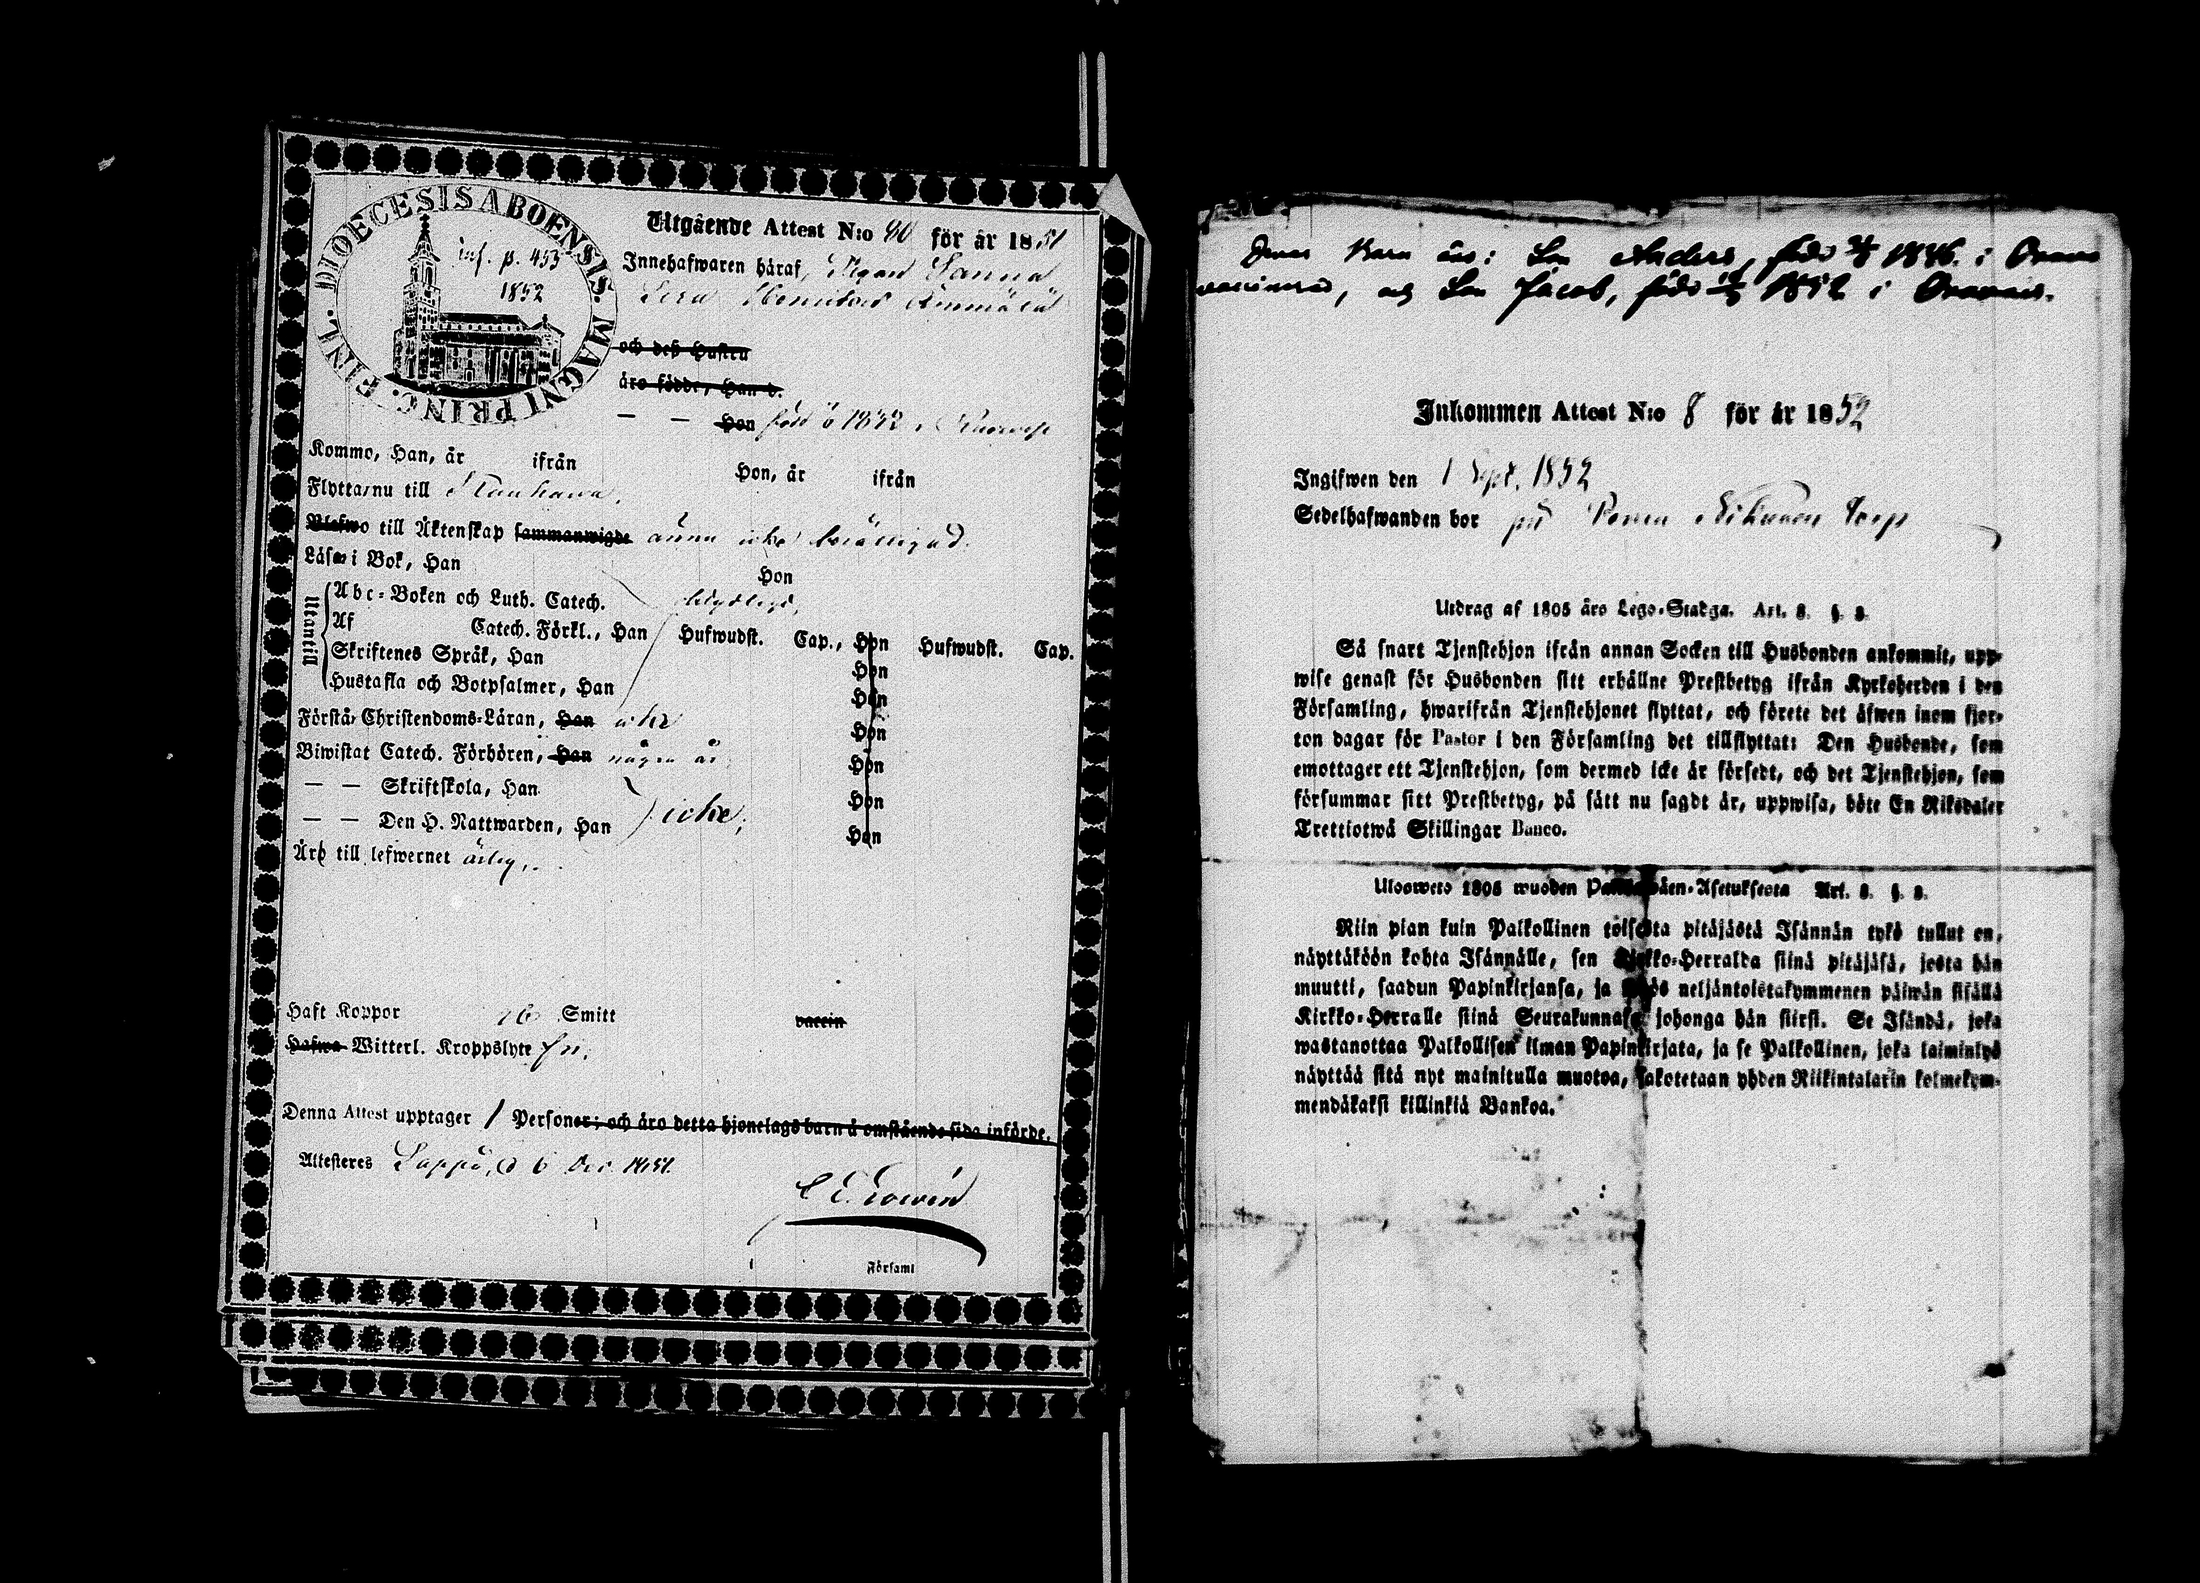 DIOECESIS ABOENSIS. MAGNI PRINC. FINL.
inf. p. 453
1852
Utgående Attest N:o 80 för år 1851
Innehafwaren häraf, Pigan Sanna
Lisa
och deß Hustru
äro födde, Han d.
— — Hon född 1832 i
Kommo, Han, år ifrån Hon, år ifrån
Flytta nu till
Blefwo till Äktenskap sammanwigde ännu icke berättigad.
Läsa i Bok, Han Hon
Utantill
Abc-Boken och Luth. Catech.
Af Catech. Förkl., Han Hufwudst. Cap., Hon Hufwudst. Cap.
Skriftenes Språk, Han Hon
Hustafla och Botpsalmer, Han Hon
Förstå Christendoms-Läran, Han icke Hon
Biwistat Catech. Förhören, Han några år Hon
— — Skriftskola, Han Hon
— — Den H. Nattwarden, Han icke, Hon
Äro till lefwernet ärlig,
Haft Koppor Smitt vaccin
Hafwa Witterl. Kroppslyte fri,
Denna Attest upptager 1 Personer; och äro detta hjonelags barn å omstående sida införde.
Attesteres Lappo, d 6 Dec. 1851.
Församl
Deras Barn äro: Son Anders, född 1846 i
vaccinerad, och Son Jacob, född 1852 i Oravais.
Inkommen Attest N:o 8 för år 1852
Ingifwen den 1 Sept. 1852
Sedelhafwanden bor på torp
Utdrag af 1805 års Lego-Stadga. Art. 8. §. 8.
Så snart Tjenstehjon ifrån annan Socken till Husbonden ankommit, upp-
wise genast för Husbonden sitt erhållne Prestbetyg ifrån Kyrkoherden i den
Församling, hwarifrån Tjenstehjonet flyttat, och förete det äfwen inom fjor-
ton dagar för Pastor i den Församling det tillflyttat: Den Husbonde, som
emottager ett Tjenstehjon, som dermed icke är försedt, och det Tjenstehjon, som
försummar sitt Prestbetyg, på sätt nu sagdt är, uppwisa, böte En Riksdaler
Trettiotwå Skillingar Banco.
Ulosweto 1805 wuoden Art. 8. §. 8.
Niin pian kuin Palkollinen toisesta pitäjästä Isännän tykö tullut on,
näyttäköön kohta Isännälle, sen Kirkko-Herralda siinä pitäjäsä, josta hän
muutti, saadun Papinkirjansa, ja myös neljäntoistakymmenen päiwän sisällä
Kirkko-Herralle siinä Seurakunnasa johonga hän siirsi. Se Isändä, joka
wastanottaa Palkollisen ilman Papinkirjata, ja se Palkollinen, joka laiminlyö
näyttää sitä nyt mainitulla muotoa, sakotetaan yhden Riikintalarin kolmekym-
mendäkaksi killinkiä Bankoa.